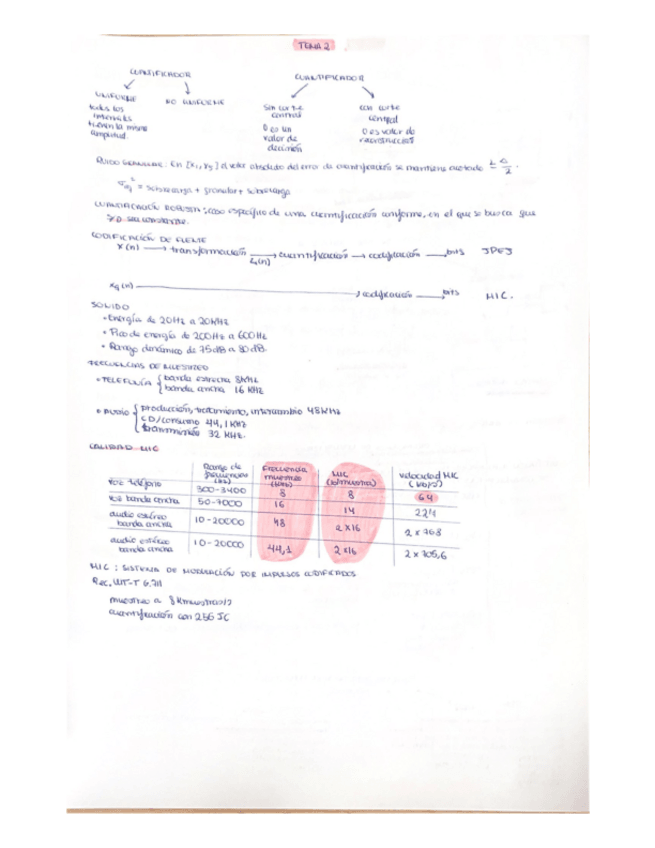 TEMA 2
CUANTIFICADOR
CUANTIFICADOR
UNIFORME
todos los
intervalos
tienen la misma
amplitud.
NO UNIFORME
Sin corte
central
0 es un
valor de
decisión
con corte
central
0 es valor de
reconstrucción
RUIDO GRANULAR: En [x1, xy] el valor absoluto del error de cuantificación se mantiene acotado ± Δ/2.
σq² = sobrecarga + granular + sobrecarga
CUANTIFICACIÓN ROBUSTA: caso específico de una cuantificación uniforme, en el que se busca que
sea constante.
CODIFICACIÓN DE FUENTE
x(n) → transformación → cuantificación → codificación → bits JPEG
xq(n) → codificación → bits MIC.
SONIDO
• Energía de 20Hz a 20kHz
• Pico de energía de 200Hz a 600Hz
• Rango dinámico de 75dB a 80dB.
FRECUENCIAS DE MUESTREO
• TELEFONÍA { banda estrecha 8kHz
banda ancha 16 kHz
• AUDIO { producción, tratamiento, intercambio 48kHz
CD/consumo 44,1kHz
transmisión 32 kHz.
CALIDAD MIC
Rango de frecuencias (Hz) Frecuencia muestreo MIC (b/muestra) velocidad MIC (kb/s)
voz teléfono 300-3400 8 8 64
voz banda ancha 50-7000 16 14 224
audio estéreo banda ancha 10-20000 48 2x16 2 x 768
audio estéreo banda ancha 10-20000 44,1 2x16 2 x 705,6
MIC: SISTEMA DE MODULACIÓN POR IMPULSOS CODIFICADOS
Rec. UIT-T G.711
muestreo a 8 kmuestras/s
cuantificación con 256 IC